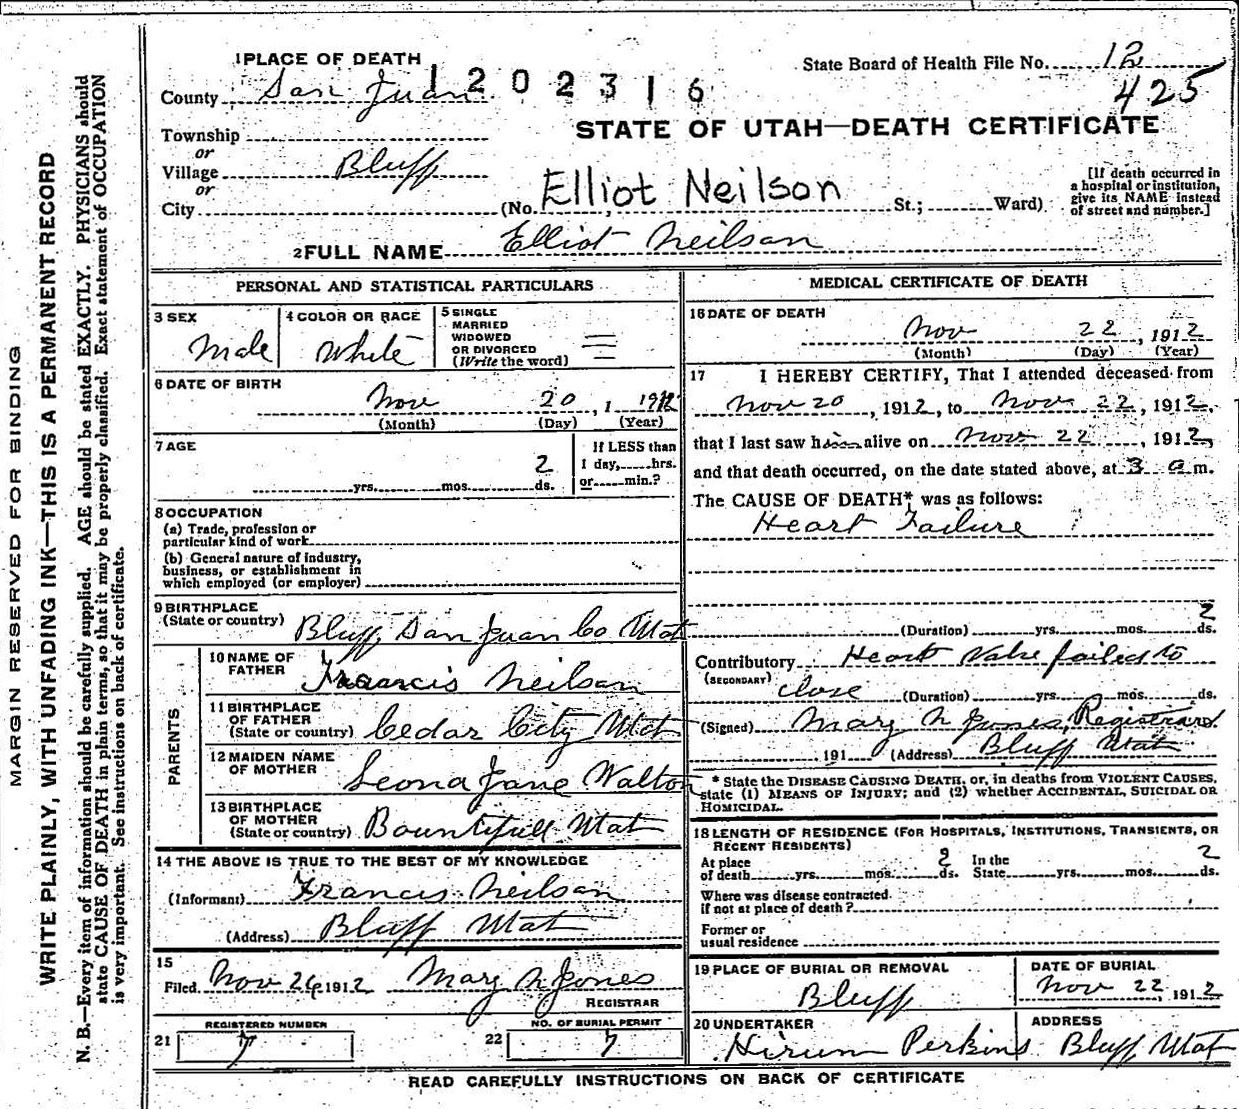 1 PLACE OF DEATH
State Board of Health File No. 12
County San Juan 1202316
425
STATE OF UTAH—DEATH CERTIFICATE
Township
or
Village Bluff
or
City (No. Elliot Neilson St.; Ward)
[If death occurred in
a hospital or institution,
give its NAME instead
of street and number.]
2 FULL NAME Elliot Neilson
PERSONAL AND STATISTICAL PARTICULARS
3 SEX
Male
4 COLOR OR RACE
White
5 SINGLE
MARRIED
WIDOWED
OR DIVORCED
(Write the word)
6 DATE OF BIRTH
Nov 20, 1 1912
(Month) (Day) (Year)
7 AGE
yrs. mos. 2 ds.
If LESS than
1 day, hrs.
or min.?
8 OCCUPATION
(a) Trade, profession or
particular kind of work
(b) General nature of industry,
business, or establishment in
which employed (or employer)
9 BIRTHPLACE
(State or country) Bluff, San Juan Co Utah
PARENTS
10 NAME OF
FATHER Francis Neilson
11 BIRTHPLACE
OF FATHER
(State or country) Cedar City Utah
12 MAIDEN NAME
OF MOTHER Leona Jane Walton
13 BIRTHPLACE
OF MOTHER
(State or country) Bountifull Utah
14 THE ABOVE IS TRUE TO THE BEST OF MY KNOWLEDGE
(Informant) Francis Neilson
(Address) Bluff Utah
15
Filed Nov 26 1912 Mary N Jones
REGISTRAR
REGISTERED NUMBER
21 7
NO. OF BURIAL PERMIT
22 7
MEDICAL CERTIFICATE OF DEATH
16 DATE OF DEATH
Nov 22, 1912
(Month) (Day) (Year)
17 I HEREBY CERTIFY, That I attended deceased from
Nov 20, 1912, to Nov 22, 1912,
that I last saw him alive on Nov 22, 1912,
and that death occurred, on the date stated above, at 3 a m.
The CAUSE OF DEATH* was as follows:
Heart Failure
2
(Duration) yrs. mos. ds.
Contributory Heart Valve failed to
(SECONDARY) close (Duration) yrs. mos. ds.
(Signed) Mary N Jones, Registrar
191 (Address) Bluff Utah
* State the DISEASE CAUSING DEATH, or, in deaths from VIOLENT CAUSES,
state (1) MEANS OF INJURY; and (2) whether ACCIDENTAL, SUICIDAL OR
HOMICIDAL.
18 LENGTH OF RESIDENCE (FOR HOSPITALS, INSTITUTIONS, TRANSIENTS, OR
RECENT RESIDENTS)
At place
of death yrs. mos. 2 ds.
In the
State yrs. mos. 2 ds.
Where was disease contracted
if not at place of death?
Former or
usual residence
19 PLACE OF BURIAL OR REMOVAL
Bluff
DATE OF BURIAL
Nov 22, 1912
20 UNDERTAKER
Hirum Perkins
ADDRESS
Bluff Utah
READ CAREFULLY INSTRUCTIONS ON BACK OF CERTIFICATE
MARGIN RESERVED FOR BINDING
WRITE PLAINLY, WITH UNFADING INK—THIS IS A PERMANENT RECORD
N. B.—Every item of information should be carefully supplied. AGE should be stated EXACTLY. PHYSICIANS should
state CAUSE OF DEATH in plain terms, so that it may be properly classified. Exact statement of OCCUPATION
is very important. See instructions on back of certificate.